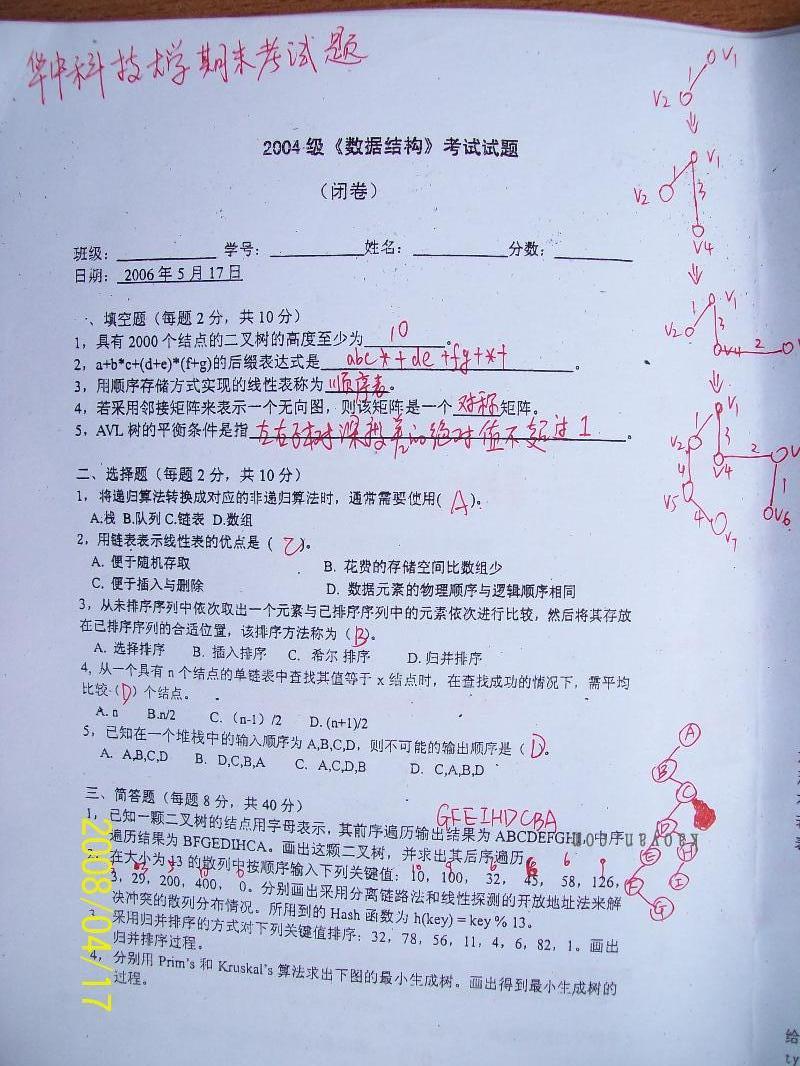 华中科技大学期末考试题
2004 级《数据结构》考试试题
（闭卷）
班级：  学号：  姓名：  分数：
日期： 2006 年 5 月 17 日
一、填空题（每题 2 分，共 10 分）
1，具有 2000 个结点的二叉树的高度至少为 10 。
2，a+b*c+(d+e)*(f+g)的后缀表达式是 abc*+de+fg+*+ 。
3，用顺序存储方式实现的线性表称为 顺序表 。
4，若采用邻接矩阵来表示一个无向图，则该矩阵是一个 对称 矩阵。
5，AVL 树的平衡条件是指 左右子树深度差的绝对值不超过 1 。
二、选择题（每题 2 分，共 10 分）
1， 将递归算法转换成对应的非递归算法时，通常需要使用( A )。
A.栈 B.队列 C.链表 D.数组
2，用链表表示线性表的优点是（ C ）。
A. 便于随机存取 B. 花费的存储空间比数组少
C. 便于插入与删除 D. 数据元素的物理顺序与逻辑顺序相同
3，从未排序序列中依次取出一个元素与已排序序列中的元素依次进行比较，然后将其存放
在已排序序列的合适位置，该排序方法称为（B）。
A. 选择排序 B. 插入排序 C. 希尔 排序 D. 归并排序
4, 从一个具有 n 个结点的单链表中查找其值等于 x 结点时，在查找成功的情况下，需平均
比较（D）个结点。
A. n B.n/2 C.（n-1）/2 D. (n+1)/2
5，已知在一个堆栈中的输入顺序为 A,B,C,D，则不可能的输出顺序是（ D ）。
A. A,B,C,D B. D,C,B,A C. A,C,D,B D. C,A,B,D
三、简答题（每题 8 分，共 40 分）
GFEIHDCBA
1，已知一颗二叉树的结点用字母表示，其前序遍历输出结果为 ABCDEFGHI，中序
遍历结果为 BFGEDIHCA。画出这颗二叉树，并求出其后序遍历。
2，在大小为 13 的散列中按顺序输入下列关键值：10，100， 32， 45， 58，126，
3，29，200，400， 0。分别画出采用分离链路法和线性探测的开放地址法来解
决冲突的散列分布情况。所用到的 Hash 函数为 h(key) = key % 13。
3，采用归并排序的方式对下列关键值排序：32，78，56，11，4，6，82，1。画出
归并排序过程。
4，分别用 Prim's 和 Kruskal's 算法求出下图的最小生成树。画出得到最小生成树的
过程。
V1
1
V2
V1
1
V2
3
V4
V1
1
V2
3
V4
2
V1
V2
3
4
V4
2
1
V5
4
V6
V7
A
B
C
D
E
H
F
I
G
kaoyan.com
2008/04/17
给
ty